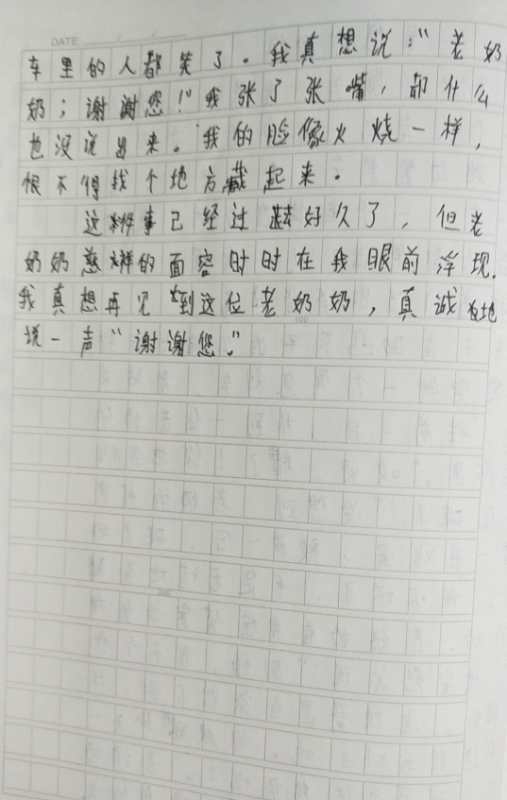 DATE
车里的人都笑了。我真想说:“老奶
奶;谢谢您!”我张了张嘴,却什么
也没说出来。我的脸像火烧一样,
恨不得找个地方藏起来。
这件事已经过去好久了,但老
奶奶慈祥的面容时时在我眼前浮现.
我真想再见到这位老奶奶,真诚地
说一声“谢谢您.”